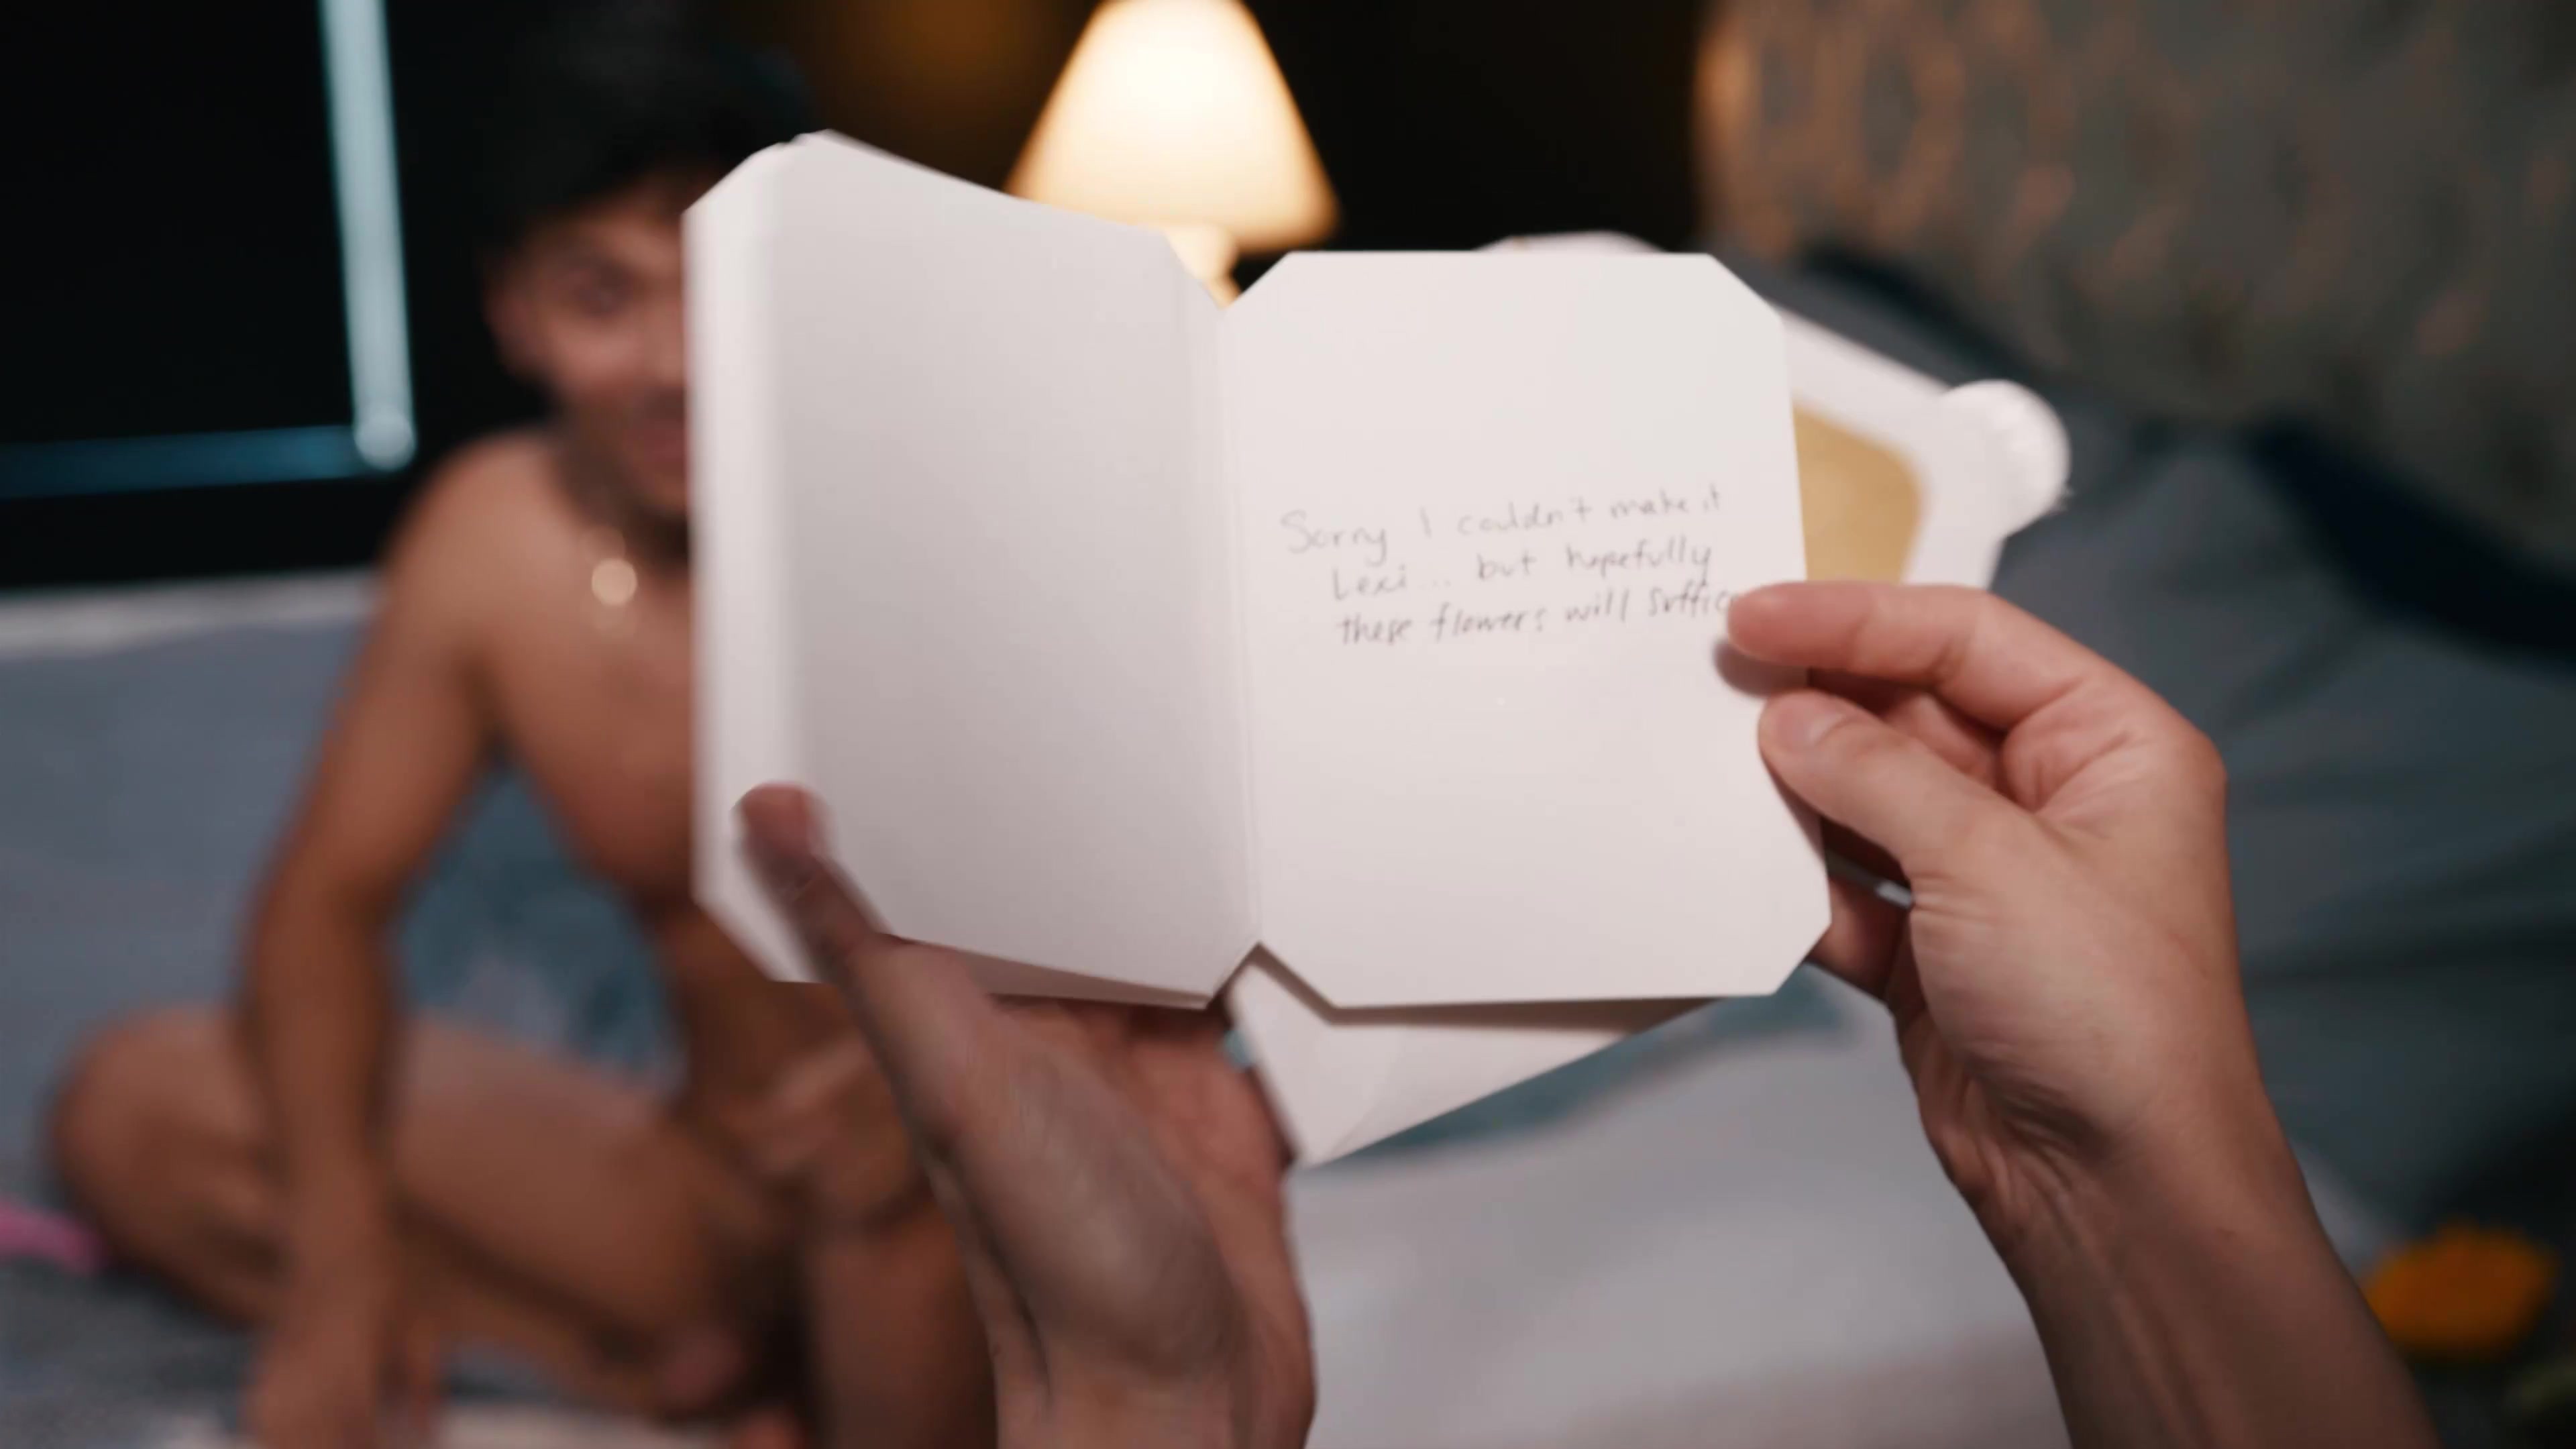 Sorry I couldn't make it
Lexi... but hopefully
these flowers will